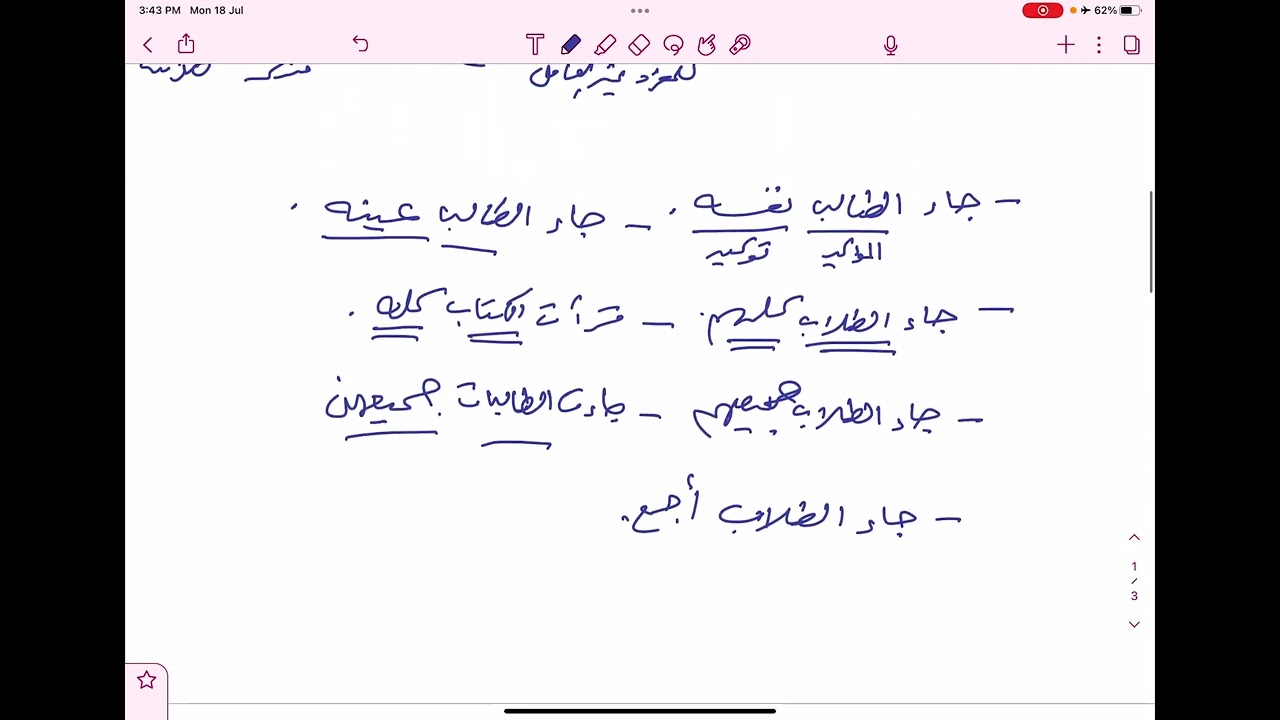 3:43 PM Mon 18 Jul
62%
- جاء الطالب نفسه . - جاء الطالب عينه .
المؤكد توكيد
- جاء الطلاب كلهم . - قرأت الكتاب كله .
- جاء الطلاب جميعهم - جاءت الطالبات جميعهن
- جاء الطلاب أجمع .
1
/
3